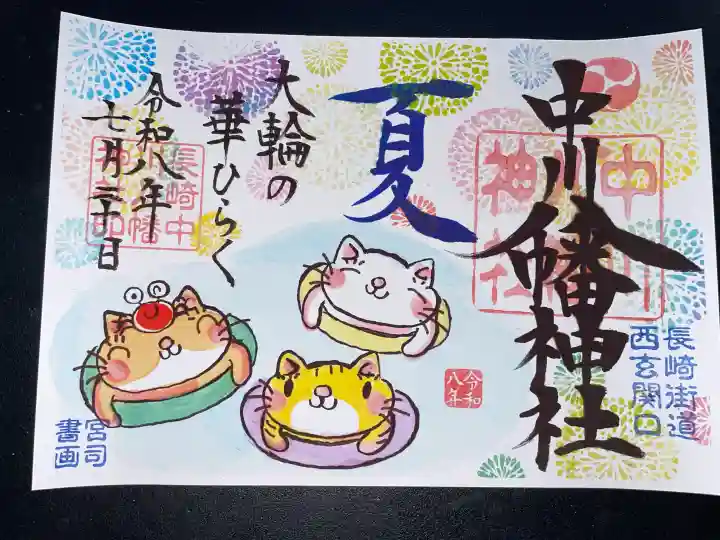 中川八幡神社
中川
八幡
神社
長崎街道
西玄関口
夏
大輪の
華ひらく
令和八年
七月二十日
長崎中
川八幡
神社印
令和
八年
宮司
書画